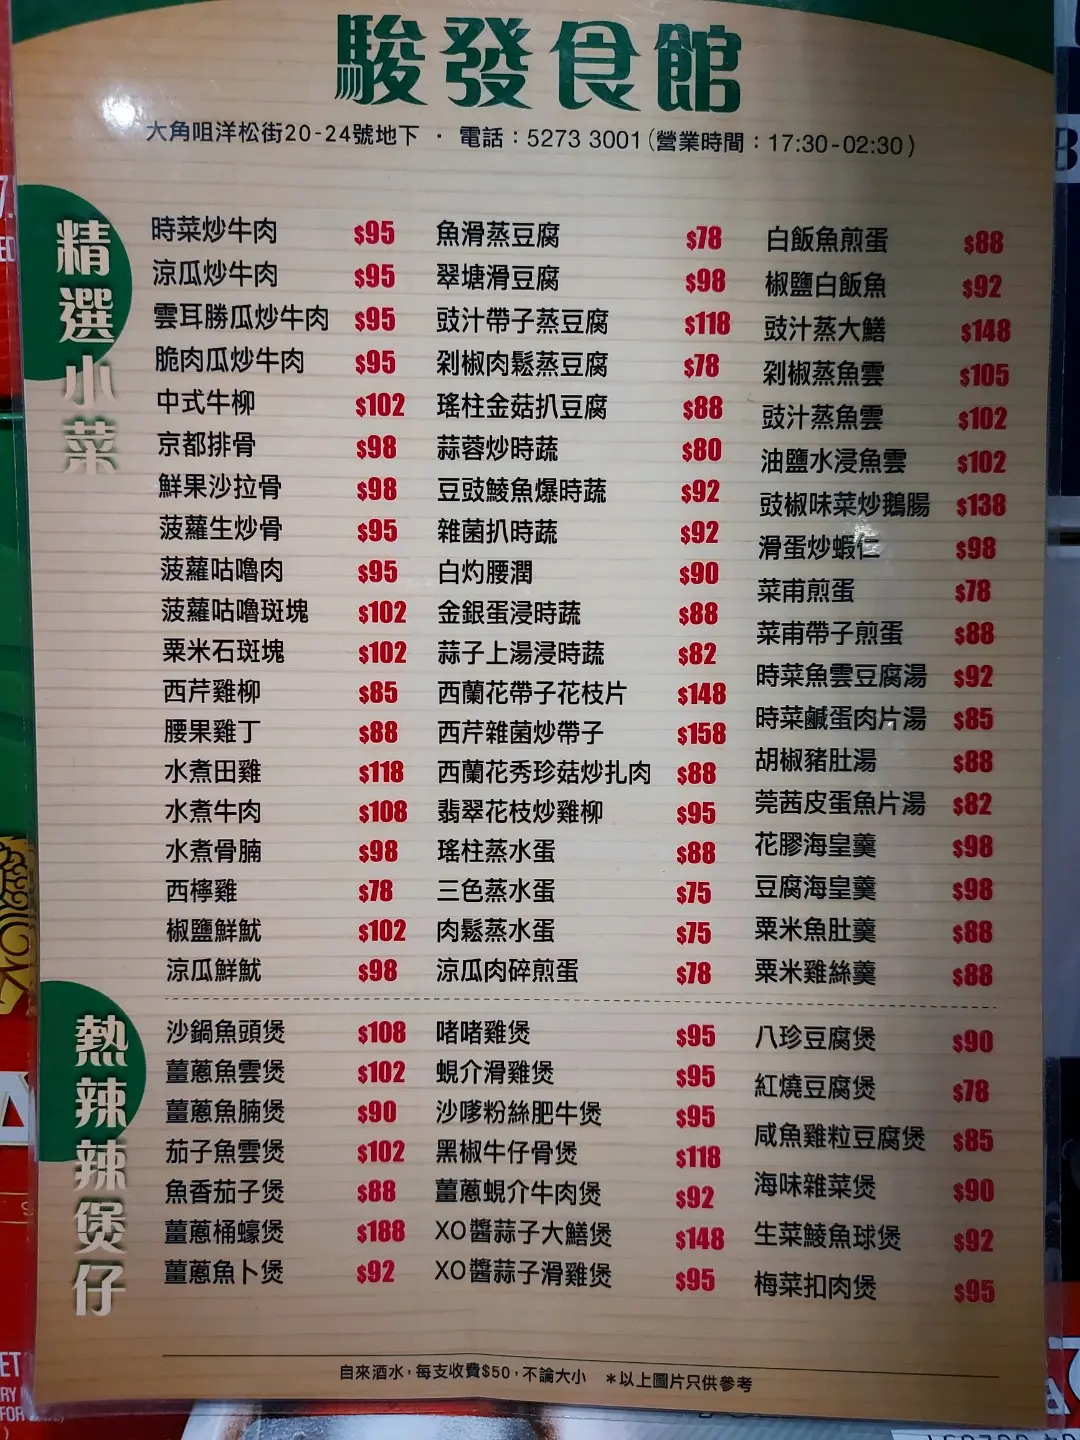 駿發食館
大角咀洋松街20-24號地下 · 電話：5273 3001（營業時間：17:30-02:30）
精選小菜
時菜炒牛肉 $95
涼瓜炒牛肉 $95
雲耳勝瓜炒牛肉 $95
脆肉瓜炒牛肉 $95
中式牛柳 $102
京都排骨 $98
鮮果沙拉骨 $98
菠蘿生炒骨 $95
菠蘿咕嚕肉 $95
菠蘿咕嚕斑塊 $102
粟米石斑塊 $102
西芹雞柳 $85
腰果雞丁 $88
水煮田雞 $118
水煮牛肉 $108
水煮骨腩 $98
西檸雞 $78
椒鹽鮮魷 $102
涼瓜鮮魷 $98
魚滑蒸豆腐 $78
翠塘滑豆腐 $98
豉汁帶子蒸豆腐 $118
剁椒肉鬆蒸豆腐 $78
瑤柱金菇扒豆腐 $88
蒜蓉炒時蔬 $80
豆豉鯪魚爆時蔬 $92
雜菌扒時蔬 $92
白灼腰潤 $90
金銀蛋浸時蔬 $88
蒜子上湯浸時蔬 $82
西蘭花帶子花枝片 $148
西芹雜菌炒帶子 $158
西蘭花秀珍菇炒扎肉 $88
翡翠花枝炒雞柳 $95
瑤柱蒸水蛋 $88
三色蒸水蛋 $75
肉鬆蒸水蛋 $75
涼瓜肉碎煎蛋 $78
白飯魚煎蛋 $88
椒鹽白飯魚 $92
豉汁蒸大鱔 $148
剁椒蒸魚雲 $105
豉汁蒸魚雲 $102
油鹽水浸魚雲 $102
豉椒味菜炒鵝腸 $138
滑蛋炒蝦仁 $98
菜甫煎蛋 $78
菜甫帶子煎蛋 $88
時菜魚雲豆腐湯 $92
時菜鹹蛋肉片湯 $85
胡椒豬肚湯 $88
莞茜皮蛋魚片湯 $82
花膠海皇羹 $98
豆腐海皇羹 $98
粟米魚肚羹 $88
粟米雞絲羹 $88
熱辣辣煲仔
沙鍋魚頭煲 $108
薑蔥魚雲煲 $102
薑蔥魚腩煲 $90
茄子魚雲煲 $102
魚香茄子煲 $88
薑蔥桶蠔煲 $188
薑蔥魚卜煲 $92
啫啫雞煲 $95
蜆介滑雞煲 $95
沙嗲粉絲肥牛煲 $95
黑椒牛仔骨煲 $118
薑蔥蜆介牛肉煲 $92
XO醬蒜子大鱔煲 $148
XO醬蒜子滑雞煲 $95
八珍豆腐煲 $90
紅燒豆腐煲 $78
咸魚雞粒豆腐煲 $85
海味雜菜煲 $90
生菜鯪魚球煲 $92
梅菜扣肉煲 $95
自來酒水，每支收費$50，不論大小 *以上圖片只供參考